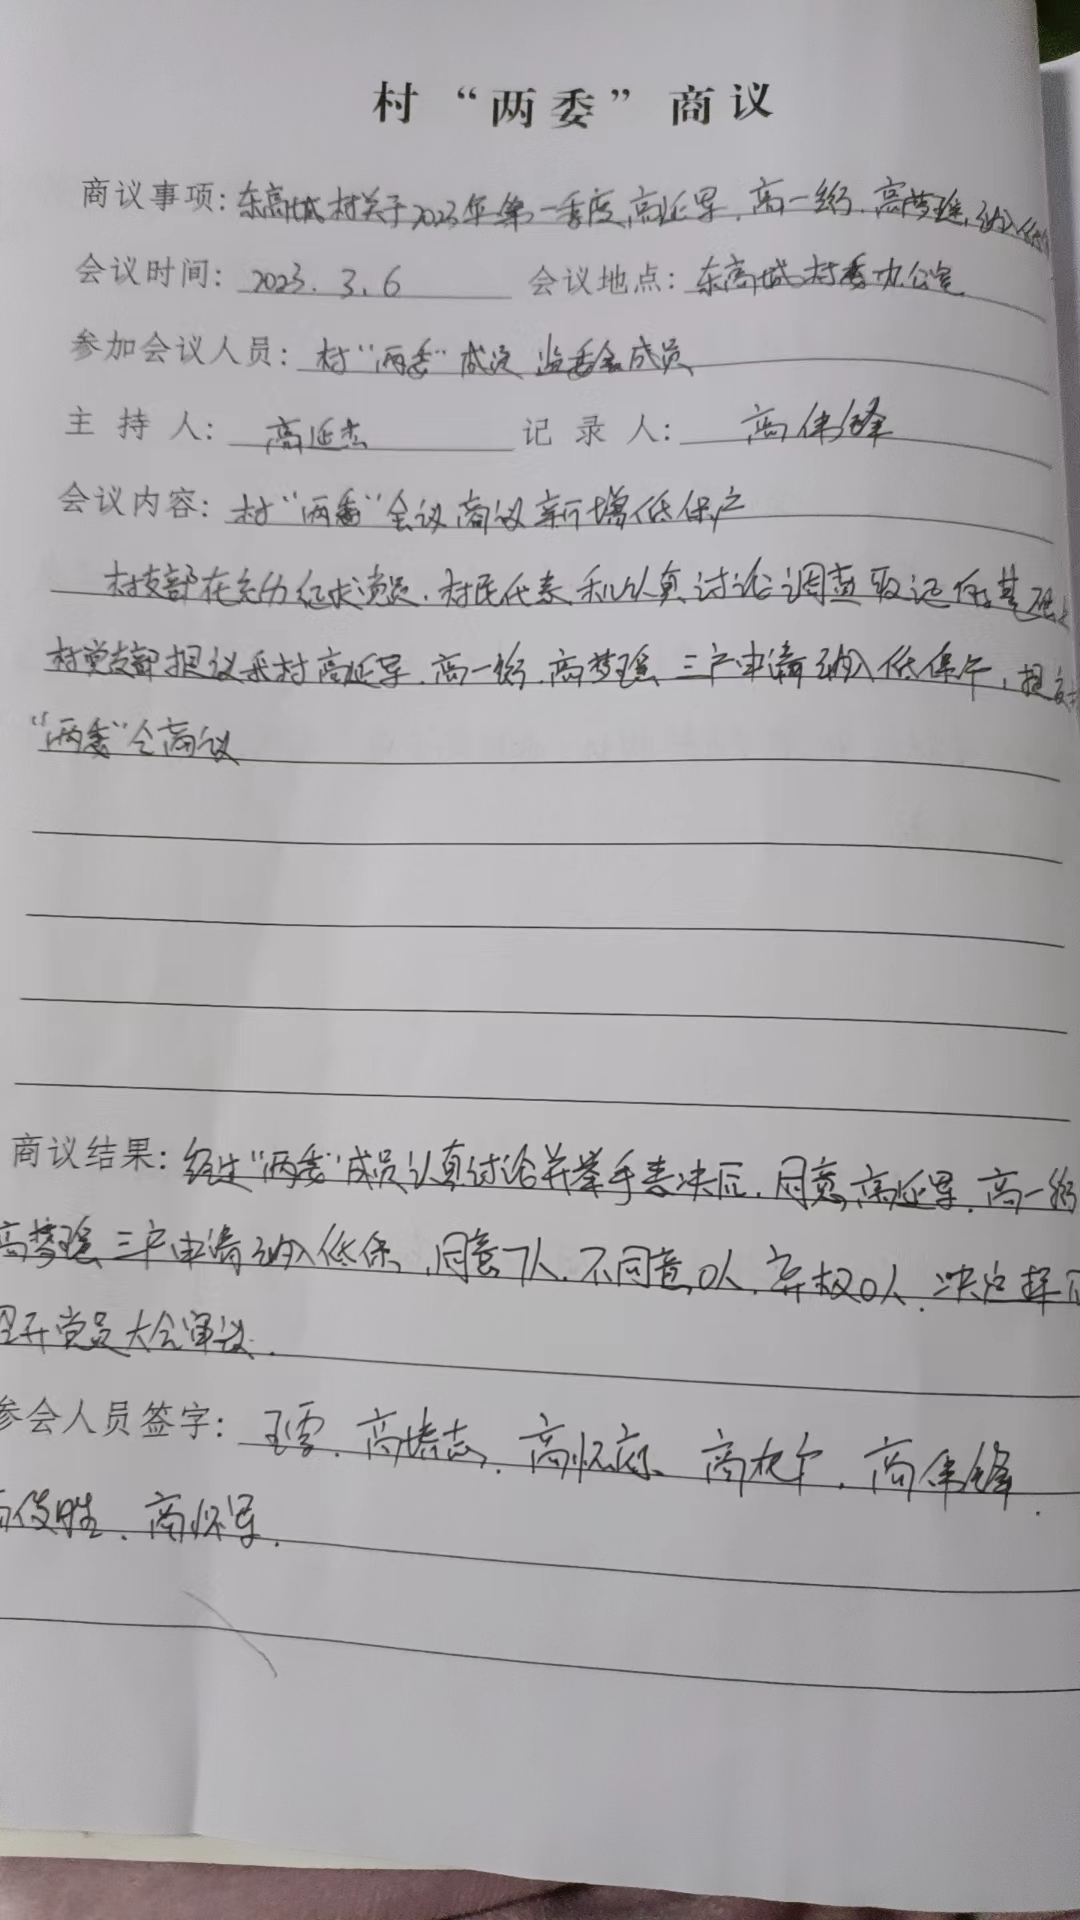 村“两委”商议
商议事项：东高城村关于2023年第一季度高延军、高一纷、高梦瑶、纳入低保
会议时间：2023.3.6 会议地点：东高城村委办公室
参加会议人员：村“两委”成员 监委会成员
主持人：高延杰 记录人：高伟锋
会议内容：村“两委”会议商议新增低保户
村支部在充分征求党员、村民代表和认真讨论调查取证的基础上
村党支部提议来村高延军、高一纷、高梦瑶三户申请纳入低保户，提交村
“两委”会商议
商议结果：经过“两委”成员认真讨论并举手表决后，同意高延军、高一纷
高梦瑶三户申请纳入低保，同意7人，不同意0人，弃权0人，决定择日
召开党员大会审议.
参会人员签字：王雪、高、高怀、高、高伟锋.
俊胜、高怀军.